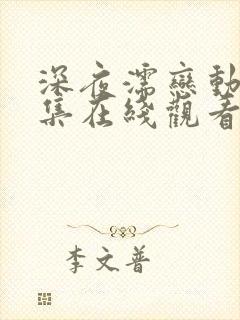 深夜濡戀動
集在綫觀看
李文普